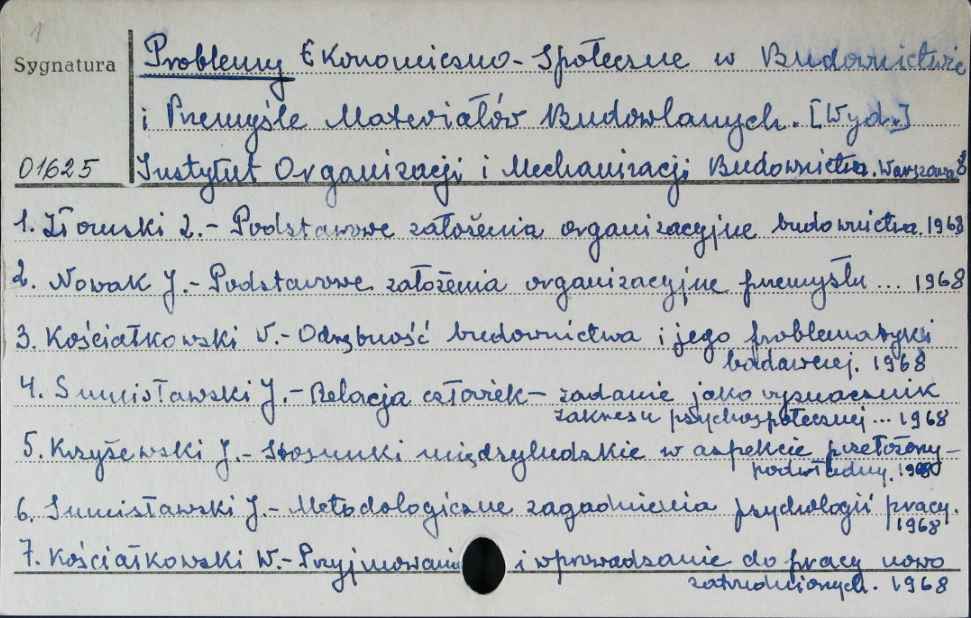 1
Sygnatura
Problemy Ekonomiczno-Społeczne w Budownictwie
i Przemyśle Materiałów Budowlanych. [Wyd.]
01625
Instytut Organizacji i Mechanizacji Budownictwa. Warszawa
1. Iłowski Z.- Podstawowe założenia organizacyjne budownictwa. 1968
2. Nowak J.- Podstawowe założenia organizacyjne przemysłu ... 1968
3. Kościałkowski W.- Odrębność budownictwa i jego problematyki
badawczej. 1968
4. Sumisławski J.- Relacja człowiek- zadanie jako wyznacznik
zakresu psychospołecznej ... 1968
5. Krzyżewski J.- Stosunki międzyludzkie w aspekcie przełożony-
podwładny. 1968
6. Sumisławski J.- Metodologiczne zagadnienia psychologii pracy.
1968
7. Kościałkowski W.- Przyjmowanie i wprowadzanie do pracy nowo
zatrudnionych. 1968